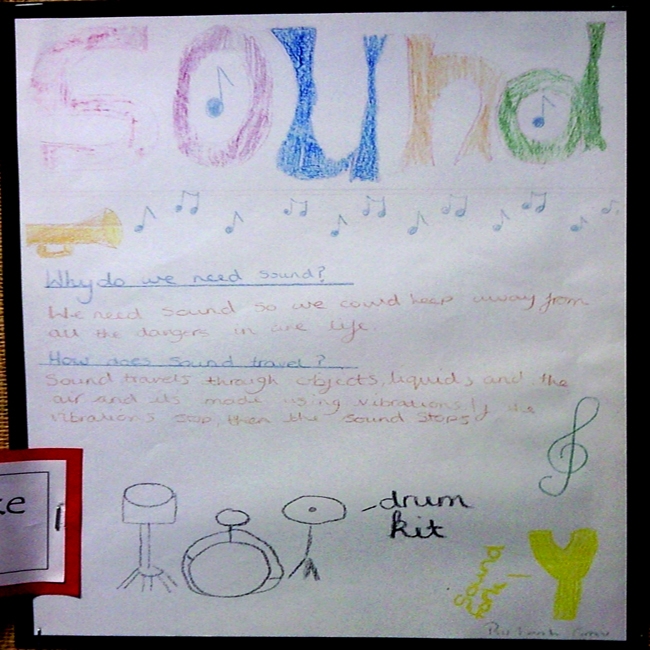 Sound
Why do we need sound?
We need sound so we could keep away from
all the dangers in are life
How does sound travel?
Sound travels through objects, liquids and the
air and its made using vibrations If the
vibrations stop then the sound stops
drum
kit
Y